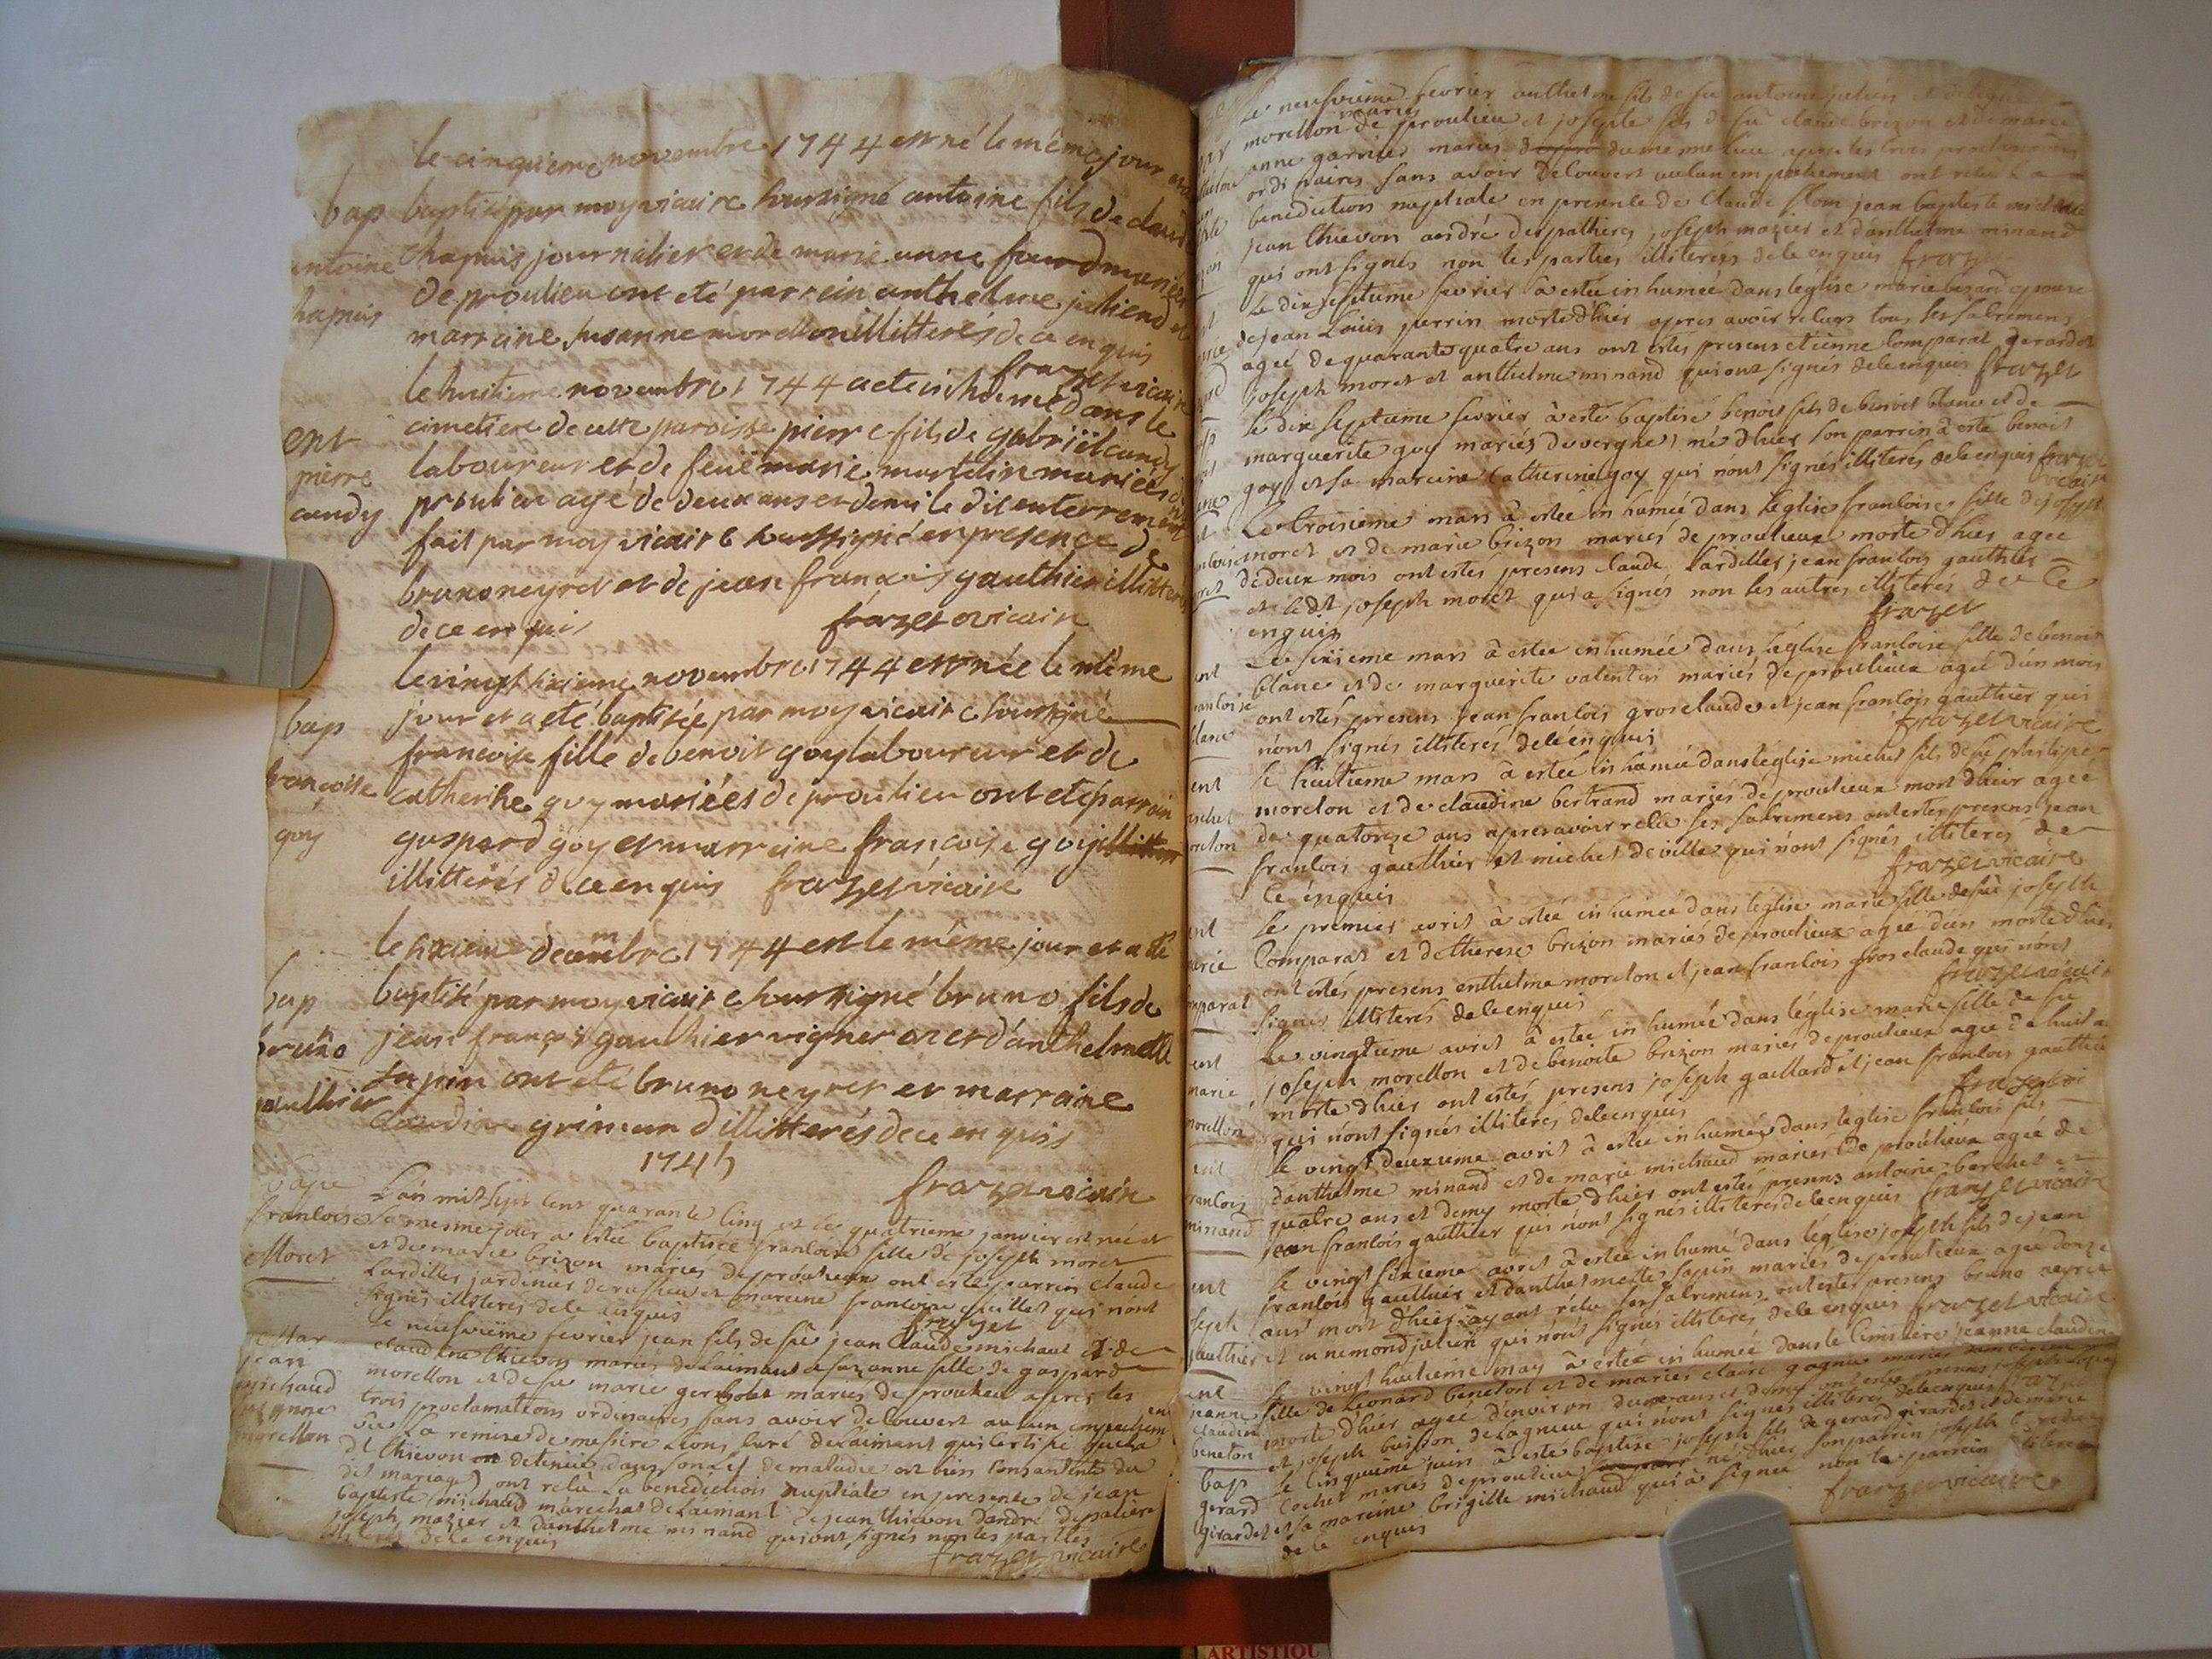 le cinquieme novembre 1744 est né le même jour et a
bap baptisé par moy vicaire soussigné antoine fils de claude
antoine chapuis journalier et de marie anne mariées
chapuis de proulieu ont eté parrein anthelme julliend et
marraine susanne morellon illitterés de ce enquis
frazet vicaire
le huitieme novembre 1744 a eté inhumé dans le
ent cimetiere de cette paroisse pierre fils de gabriël candy
pierre laboureur et de feuë marie martelin mariées de
candy proulieu agé de deux ans et demi le dit enterrement
fait par moy vicaire soussigné en presence de
bruno neyret et de jean françois gauthier illitterés
de ce enquis frazet vicaire
le vingt sixieme novembre 1744 est née le même
bap jour et a eté baptisée par moy vicaire soussigné
francoise francoise fille de benoit goy laboureur et de
goy catherine guy mariées de proulieu ont eté parrain
gaspard goy et marraine françoise goy
illitterés de ce enquis frazet vicaire
le sixieme decembre 1744 est le même jour et a eté
bap baptisé par moy vicaire soussigné bruno fils de
bruno jean françois gauthier vigneron et d'anthelmette
gauthier sapin ont eté bruno neyret et marraine
claudine grimand illitterés de ce enquis
1745
frazet vicaire
bape L'an mil sept cent quarante cinq et le quatrieme janvier est née et
francoise le mesme jour a estée baptisée francoise fille de joseph moret
Moret et de marie brizon mariés de proulieu ont estés parrin claude
Lardillet jardinier de et mareine francoise qui nont
signés illiterés de ce enquis frazet
Mar Le neufvieme fevrier jean fils de fû jean claude michaut et de
jean claudine thievon mariés de Laimant et suzanne fille de gaspard
michaud morellon et de fû marie mariés de proulieu apres les
suzanne trois proclamations ordinaires sans avoir découvert aucun empechem en
morellon vû la remise de messire Lions curé de Laimant qui certifie que la
dt thievon detenue dans son lit de maladie est bien consantente du
dit mariage ont reçû la benediction nuptiale en presence de jean
baptiste michaud marechal de Laimant de jean thievon d'andré depaliere
joseph mazier et d'anthelme minand qui ont signés non les parties
illiterés de ce enquis frazet vicaire
Le neufvieme fevrier anthelme fils de fû antoine julien et
morellon mariés de proulieu et joseph fils de fû claude brizon et de marie
anne garnier mariés du mesme lieu apres les trois proclamations
ordinaires sans avoir decouvert aulcun empechement ont recû la
benediction nuptiale en presence de Claude jean baptiste michaud
jean thievon andré despalheres joseph mazier et d'anthelme minand
qui ont signés non les parties illiterés de ce enquis frazet
Le dix septieme fevrier à estée inhumée dans l'église marie epouse
de jean Louis perrin morte d'hier apres avoir reçus tous ses sacremens
ageé de quarante quatre ans ont estés presens etienne comparat gerardet
joseph moret et anthelme minand qui ont signés de ce enquis frazet
Le dix septieme fevrier à esté baptisé benoit fils de benoit blanc et de
marguerite guy mariés de vergne né d'hier son parrin à esté benoit
goy et sa mareine catherine goy qui n'ont signés illiterés de ce enquis frazet
vicaire
Le troisieme mars à estée inhumée dans l'eglise francoise fille de joseph
moret et de marie brizon mariés de proulieux morte d'hier ageé
de deux mois ont estés presens claude Lardillet jean francois gauthier
et le dt joseph moret qui a signés non les autres illiterés de ce
enquis frazet
ent Le sixieme mars à estée inhumée dans l'eglise francoise fille de benoit
francoise blanc et de marguerite valentin mariés de proulieux ageé d'un mois
blanc ont estés presens jean francois grosclaude et jean francois gauthier qui
n'ont signés illiterés de ce enquis frazet vicaire
ent Le huitieme mars à estée inhumée dans l'église michel fils de fû philipe
michel morelon et de claudine bertrand mariés de proulieux mort d'hier ageé
morelon de quatorze ans apres avoir recû ses sacremens ont estés presens jean
francois gauthier et michel deville qui n'ont signés illiterés de
ce enquis frazet vicaire
ent Le premier avril à estée inhumée dans l'église marie fille de fû joseph
marie Comparat et de therese brizon mariés de proulieux ageé d'un morte d'hier
comparat ont estés presens enthelme morelon et jean francois grosclaude qui n'ont
signés illiterés de ce enquis frazet vicaire
ent Le vingtieme avril à estée inhumée dans l'église marie fille de fû
marie joseph morellon et de benoite brizon mariés de proulieux ageé de huit a
morellon morte d'hier ont estés presens joseph gaillard et jean francois gauthier
qui n'ont signés illiterés de ce enquis frazet vi
ent Le vingt deuxieme avril à estée inhumée dans l'église francois fils
francois d'anthelme minand et de marie michaud mariés de proulieux ageé de
minand quatre ans et demy morte d'hier ont estés presens antoine berchet et
jean francois gauthier qui n'ont signés illiterés de ce enquis frazet vicaire
ent Le vingt sixieme avril à estée inhumé dans l'église joseph fils de jean
joseph francois gauthier et d'anthelmette sapin mariés de proulieux ageé d'onze
gauthier ans mort d'hier ayant recû ses sacremens ont estés presens bruno neyret
et ennemond julien qui n'ont signés illiterés de ce enquis frazet vicaire
ent Le vingt huitieme may à estée inhumée dans le cimetiere jeanne claudine
jeanne fille de Leonard beneton et de marie claire gagneu mariés
claudine morte d'hier ageé d'environ deux ans et demy ont estés presens joseph
beneton et joseph buisson de Lagneu qui n'ont signés illiterés de ce enquis frazet
bap Le cinquieme juin à esté baptisé joseph fils de gerard girardet et de marie
gerard Cochet mariés de proulieux né d'hier son parrin joseph
girardet et sa mareine brigitte michaud qui à signée non le parrein illiteré
de ce enquis frazet vicaire
ARTISTIQU